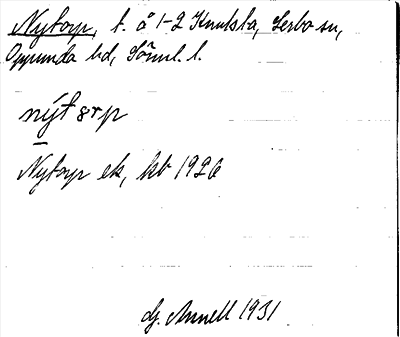 Nytorp, t. å 1-2 Knutsta, Lerbo sn,
Oppunda hd, Södml. l.
nýtorp
Nytorp ek, kb 1926
Gj. Annell 1931